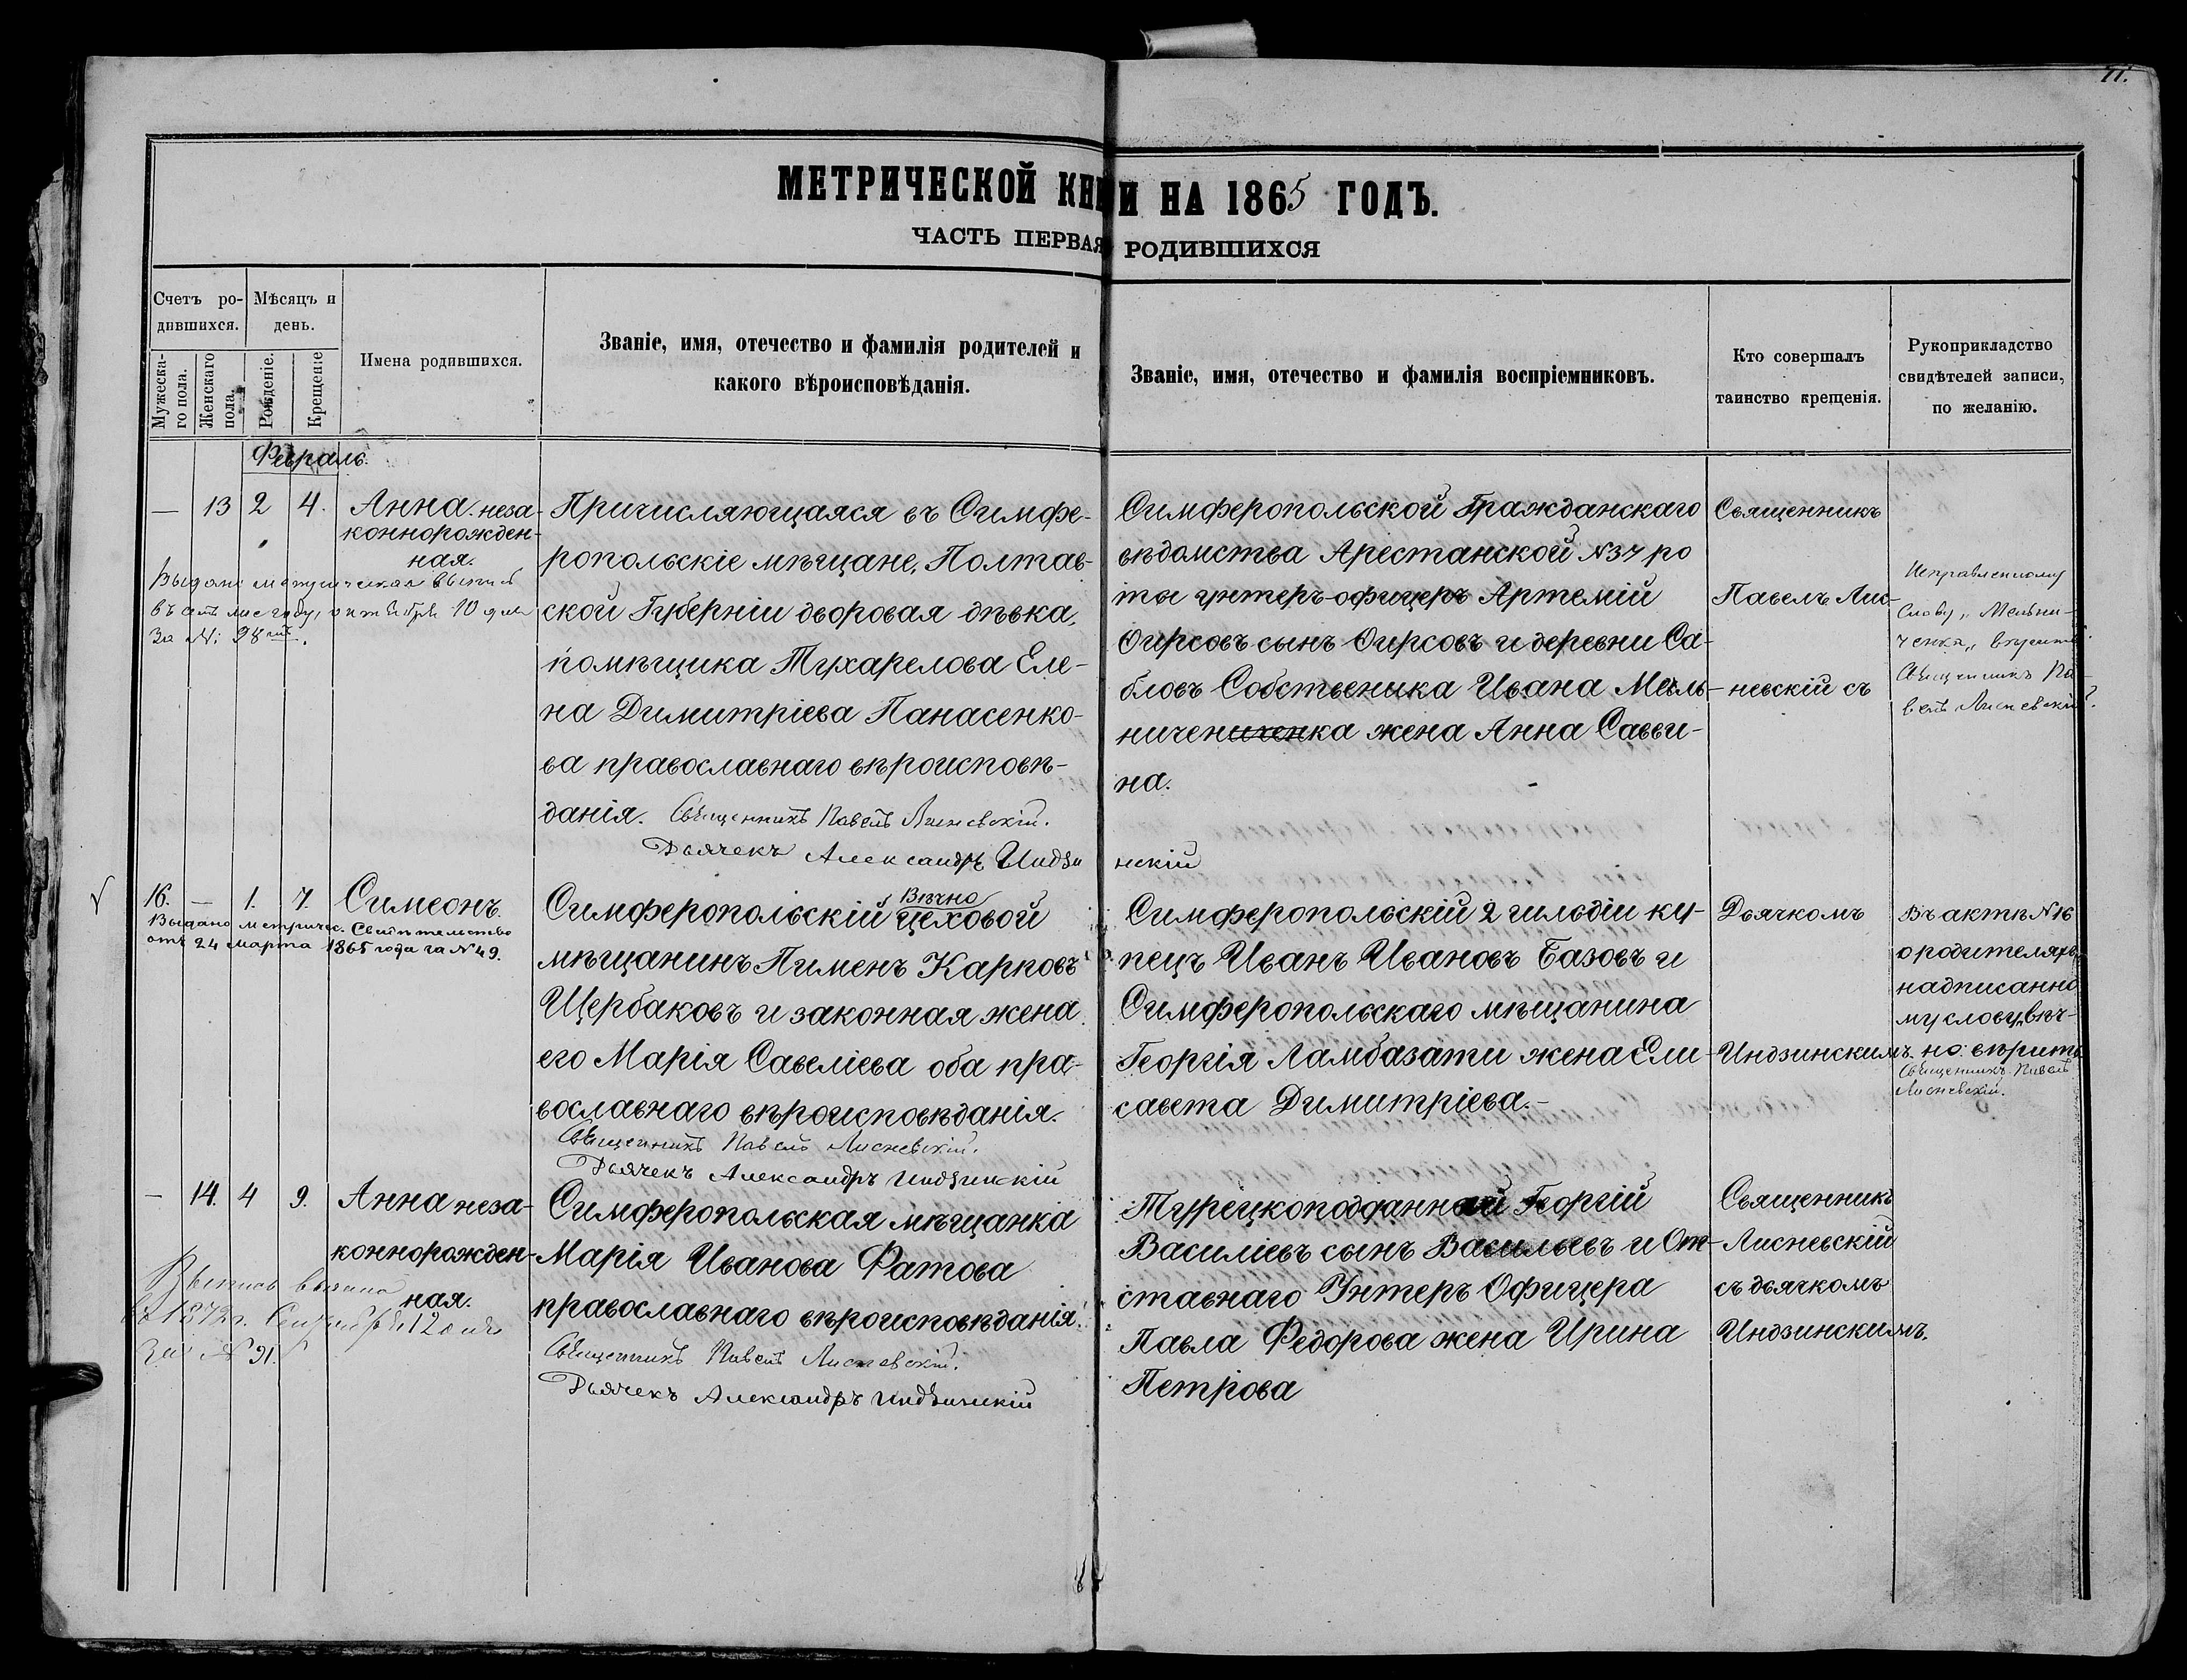 11.
МЕТРИЧЕСКОЙ КНИГИ НА 1865 ГОДЪ.
ЧАСТЬ ПЕРВАЯ РОДИВШИХСЯ
Счетъ ро-
дившихся.
Мужеска-
го пола.
Женскаго
пола.
Мѣсяцъ и
день.
Рожденіе.
Крещеніе
Имена родившихся.
Званіе, имя, отечество и фамилія родителей и
какого вѣроисповѣданія.
Званіе, имя, отечество и фамилія воспріемниковъ.
Кто совершалъ
таинство крещенія.
Рукоприкладство
свидѣтелей записи,
по желанію.
Февраль.
— 13 2 4.
Анна неза-
коннорожден-
ная.
Выдана метрическая выпись
За № 98
Причисляющаяся въ Симфе-
ропольскіе мѣщане, Полтав-
ской Губерніи дворовая дѣвка,
помѣщика Тухарелова Еле-
на Димитріева Панасенко-
ва православнаго вѣроисповѣ-
данія. Священникъ Павелъ Лисневскій.
Дьячекъ Александръ Индзи
нскій
Симферопольской Гражданскаго
вѣдомства Арестанской №37 ро
ты унтеръ-офицеръ Артемій
Ѳирсовъ сынъ Ѳирсовъ и деревни Са-
бловъ Собственика Ивана Мель-
ниченка жена Анна Савви-
на.
Священникъ
Павелъ Лис-
невскій съ
Исправленному
Слову „Мельни-
ченка„ вѣрить
Священникъ Па-
велъ Лисневскій.
16. — 1. 7.
Симеонъ.
Выдано метричес. Свидѣтельство
отъ 24 марта 1865 года за №49.
Вѣчно
Симферопольскій цеховой
мѣщанинъ Пименъ Карповъ
Щербаковъ и законная жена
его Марія Савеліева оба пра-
вославнаго вѣроисповѣданія.
Священникъ Павелъ Лисневскій.
Дьячекъ Александръ Индзинскій
Симферопольскій 2 гильдіи ку-
пецъ Иванъ Ивановъ Базовъ и
Симферопольскаго мѣщанина
Георгія Ламбазати жена Ели-
савета Димитріева.-
Дьячкомъ
Индзинскимъ.
Въ актѣ №16
о родителяхъ
надписанно
му слову „вѣч-
но„ вѣрить
Священникъ Павелъ
Лисневскій.
— 14. 4 9.
Анна неза-
коннорожден-
ная.
Выпись выдана
въ 1872г. Сентября 12 дня
За № 91.
Симферопольская мѣщанка
Марія Иванова Фатова
православнаго вѣроисповѣданія.
Священникъ Павелъ Лисневскій.
Дьячекъ Александръ Индзинскій
Турецкоподданный Георгій
Василіевъ сынъ Васильевъ и От-
ставнаго Унтеръ Офицера
Павла Федорова жена Ирина
Петрова
Священникъ
Лисневскій
съ дьячкомъ
Индзинскимъ.